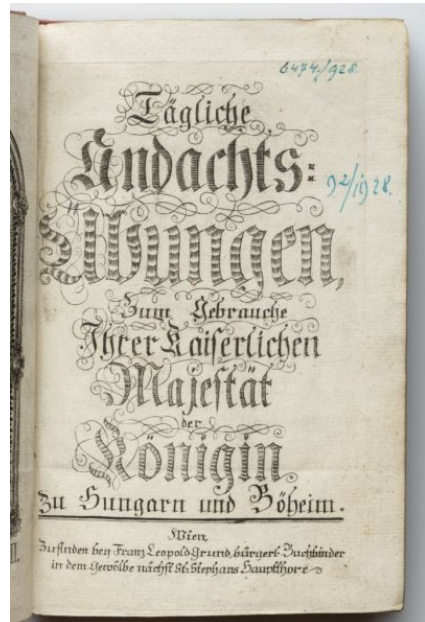 6474./928.
Tägliche
Andachts:
92/1928.
Übungen,
Zum Gebrauche
Ihrer Kaiserlichen
Majestät
der
Königin
zu Hungarn und Böheim.
Wien,
Zu finden bey Franz Leopold Grund, bürgerl. Buchbinder
in dem Gewölbe nächst St. Stephans Hauptthore